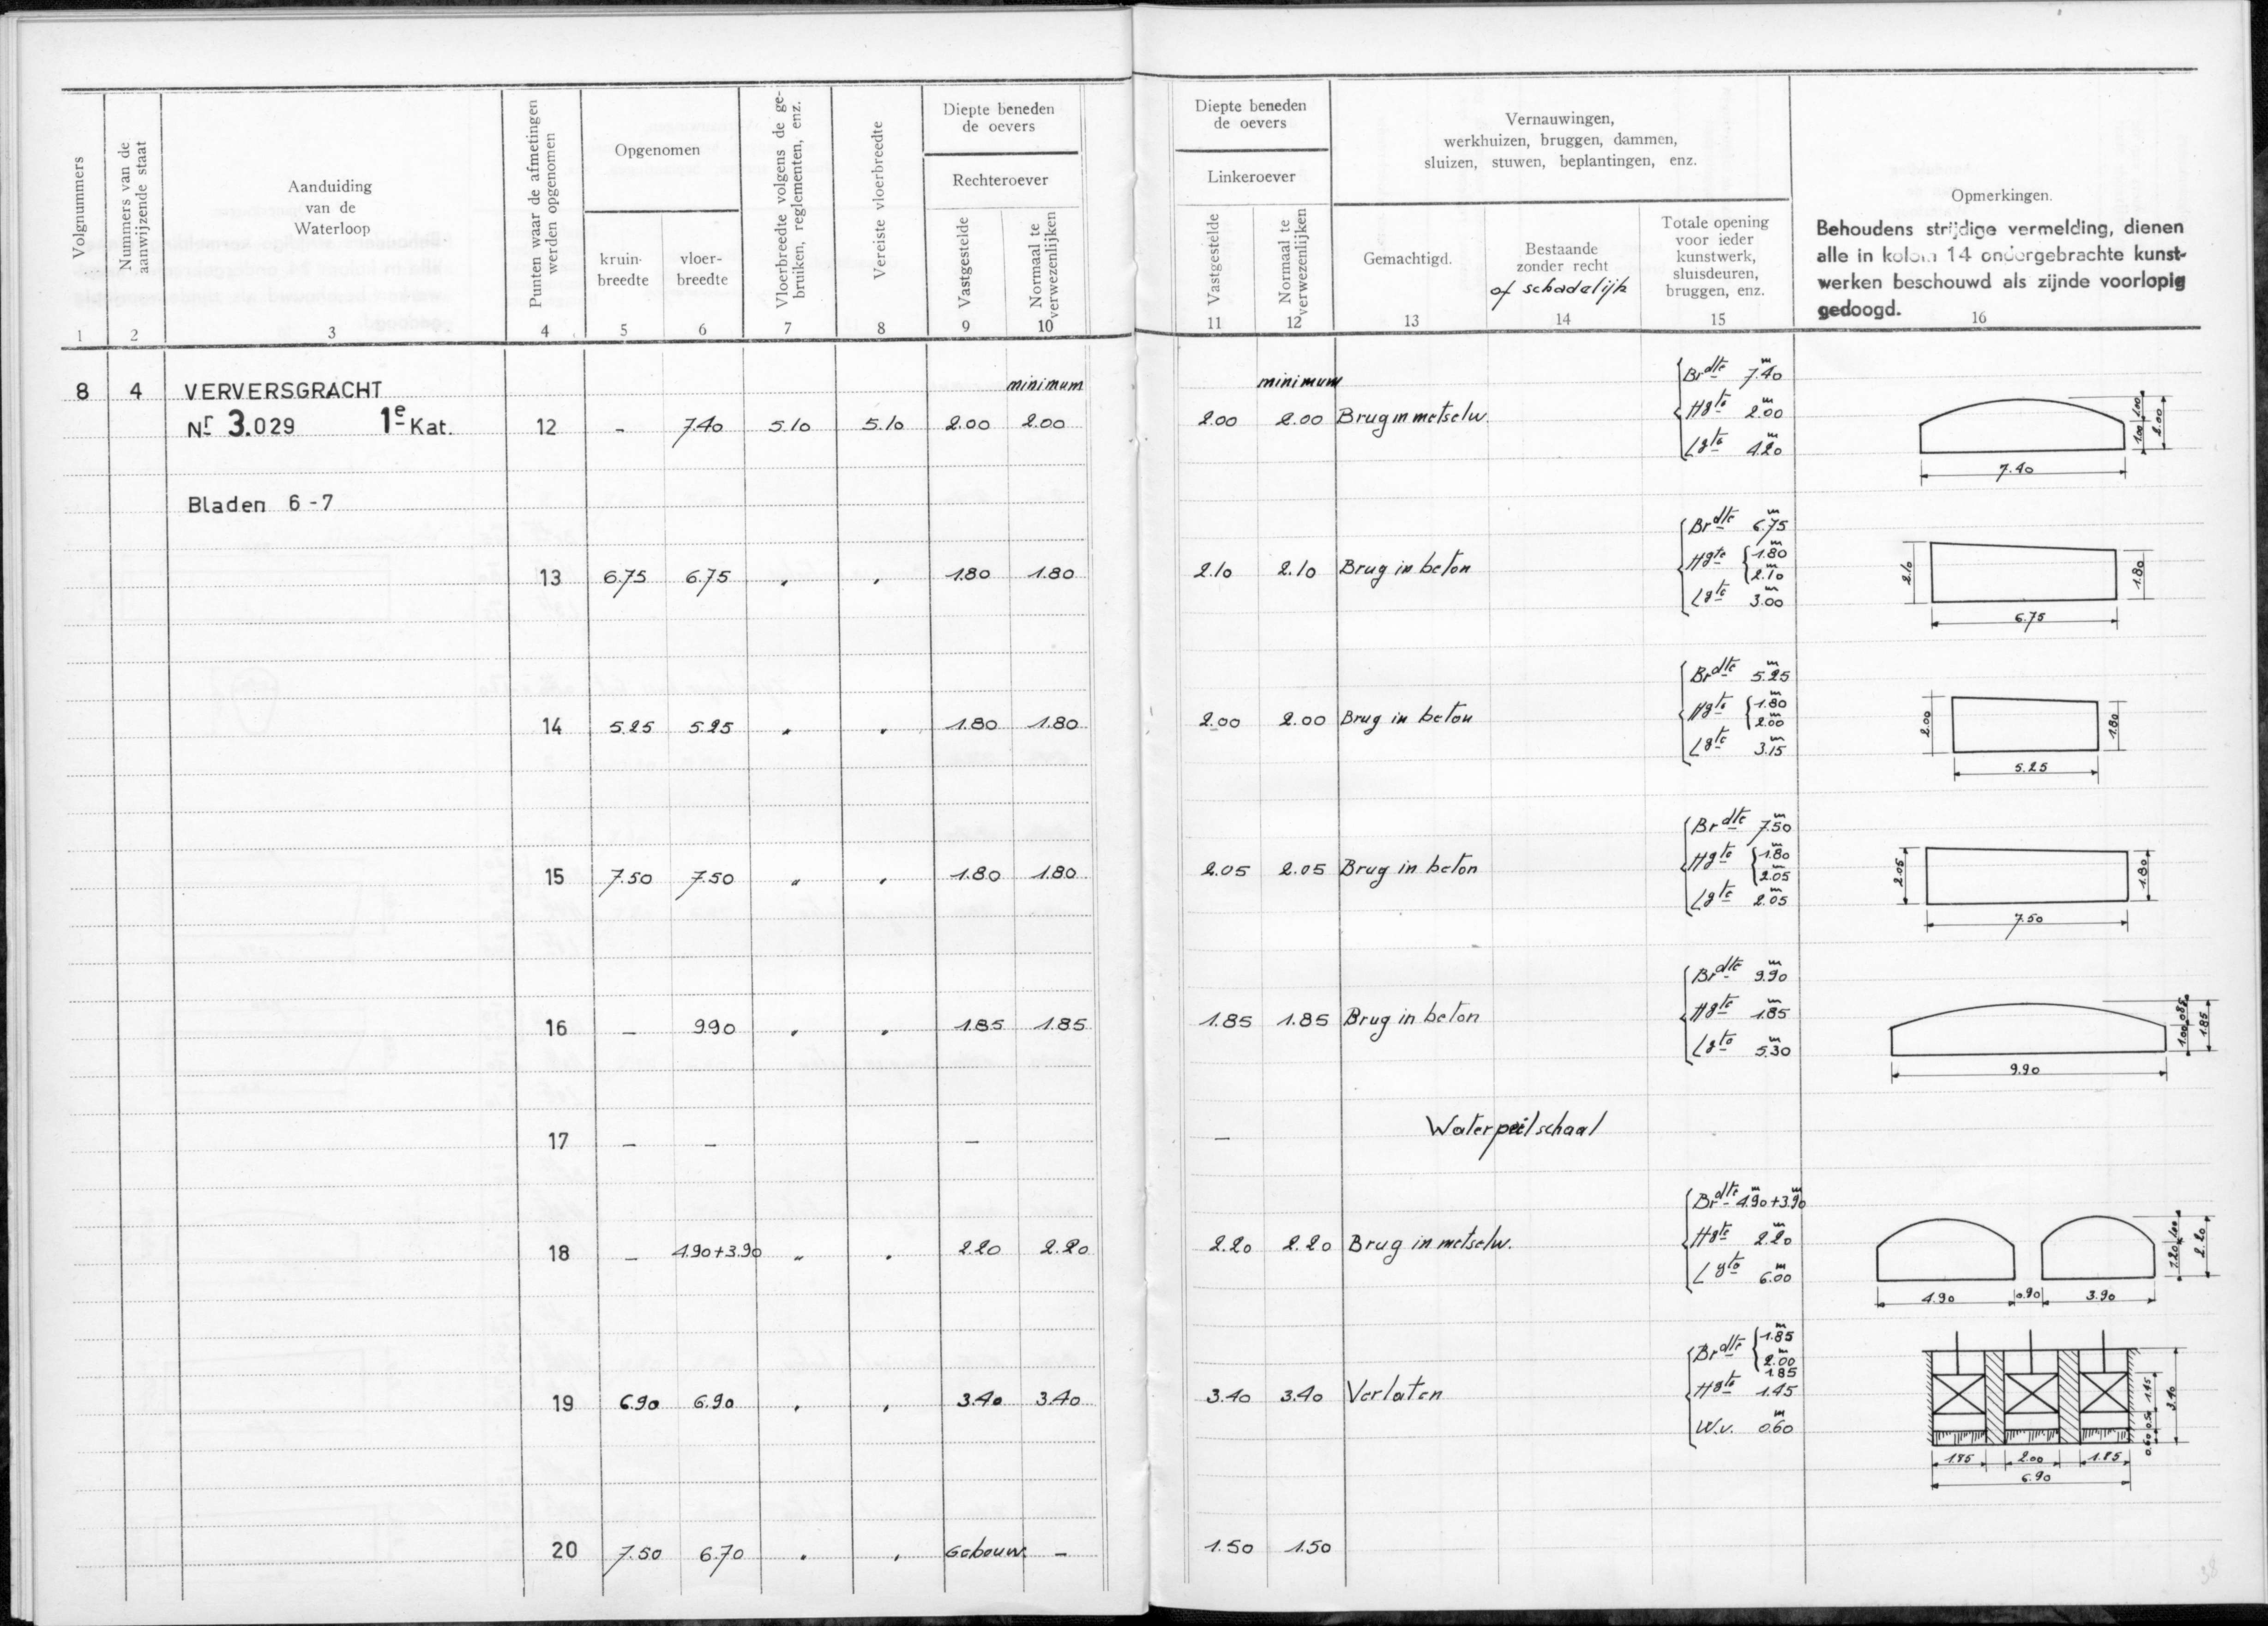 Volgnummers
Nummers van de
aanwijzende staat
Aanduiding
van de
Waterloop
Punten waar de afmetingen
werden opgenomen
Opgenomen
kruin-
breedte
vloer-
breedte
Vloerbreedte volgens de ge-
bruiken, reglementen, enz.
Vereiste vloerbreedte
Diepte beneden
de oevers
Rechteroever
Vastgestelde
Normaal te
verwezenlijken
1 2 3 4 5 6 7 8 9 10
Diepte beneden
de oevers
Linkeroever
Vastgestelde
Normaal te
verwezenlijken
Vernauwingen,
werkhuizen, bruggen, dammen,
sluizen, stuwen, beplantingen, enz.
Gemachtigd.
Bestaande
zonder recht
of schadelijk
Totale opening
voor ieder
kunstwerk,
sluisdeuren,
bruggen, enz.
Opmerkingen.
Behoudens strijdige vermelding, dienen
alle in kolom 14 ondergebrachte kunst-
werken beschouwd als zijnde voorlopig
gedoogd.
11 12 13 14 15 16
8 4 VERVERSGRACHT minimum minimum
Nr 3.029 1e Kat. 12 - 7.40 5.10 5.10 2.00 2.00 2.00 2.00 Brug in metselw.
Brdte 7.40 m
Hgte 2.00 m
Lgte 4.20 m
1.00 1.00 2.00
7.40
Bladen 6-7
13 6.75 6.75 " " 1.80 1.80 2.10 2.10 Brug in beton
Brdte 6.75 m
Hgte 1.80 m
2.10 m
Lgte 3.00 m
2.10 1.80
6.75
14 5.25 5.25 " " 1.80 1.80 2.00 2.00 Brug in beton
Brdte 5.25 m
Hgte 1.80 m
2.00 m
Lgte 3.15 m
2.00 1.80
5.25
15 7.50 7.50 " " 1.80 1.80 2.05 2.05 Brug in beton
Brdte 7.50 m
Hgte 1.80 m
2.05 m
Lgte 2.05 m
2.05 1.80
7.50
16 - 9.90 " " 1.85 1.85 1.85 1.85 Brug in beton
Brdte 9.90 m
Hgte 1.85 m
Lgte 5.30 m
1.00 0.85 1.85
9.90
17 - - - - Waterpeilschaal
18 - 4.90+3.90 " " 2.20 2.20 2.20 2.20 Brug in metselw.
Brdte 4.90 m+3.90 m
Hgte 2.20 m
Lgte 6.00 m
1.20 1.00 2.20
4.90 0.90 3.90
19 6.90 6.90 " " 3.40 3.40 3.40 3.40 Verlaten
Brdte 1.85 m
2.00 m
1.85
Hgte 1.45
W.v. 0.60 m
0.60 0.50 1.45 3.40
1.85 2.00 1.85
6.90
20 7.50 6.70 " " Gebouw. - 1.50 1.50
38